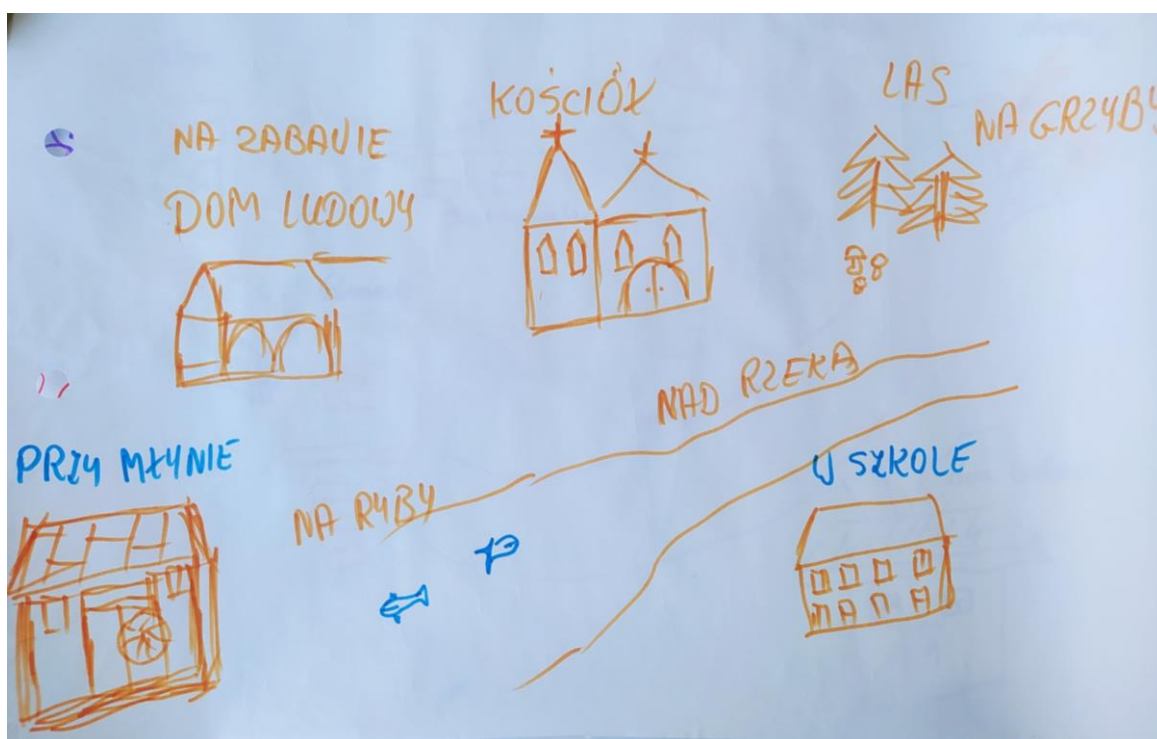 NA ZABAWIE
DOM LUDOWY
KOŚCIÓŁ
LAS
NA GRZYBY
NAD RZEKA
NA RYBY
PRZY MŁYNIE
W SZKOLE